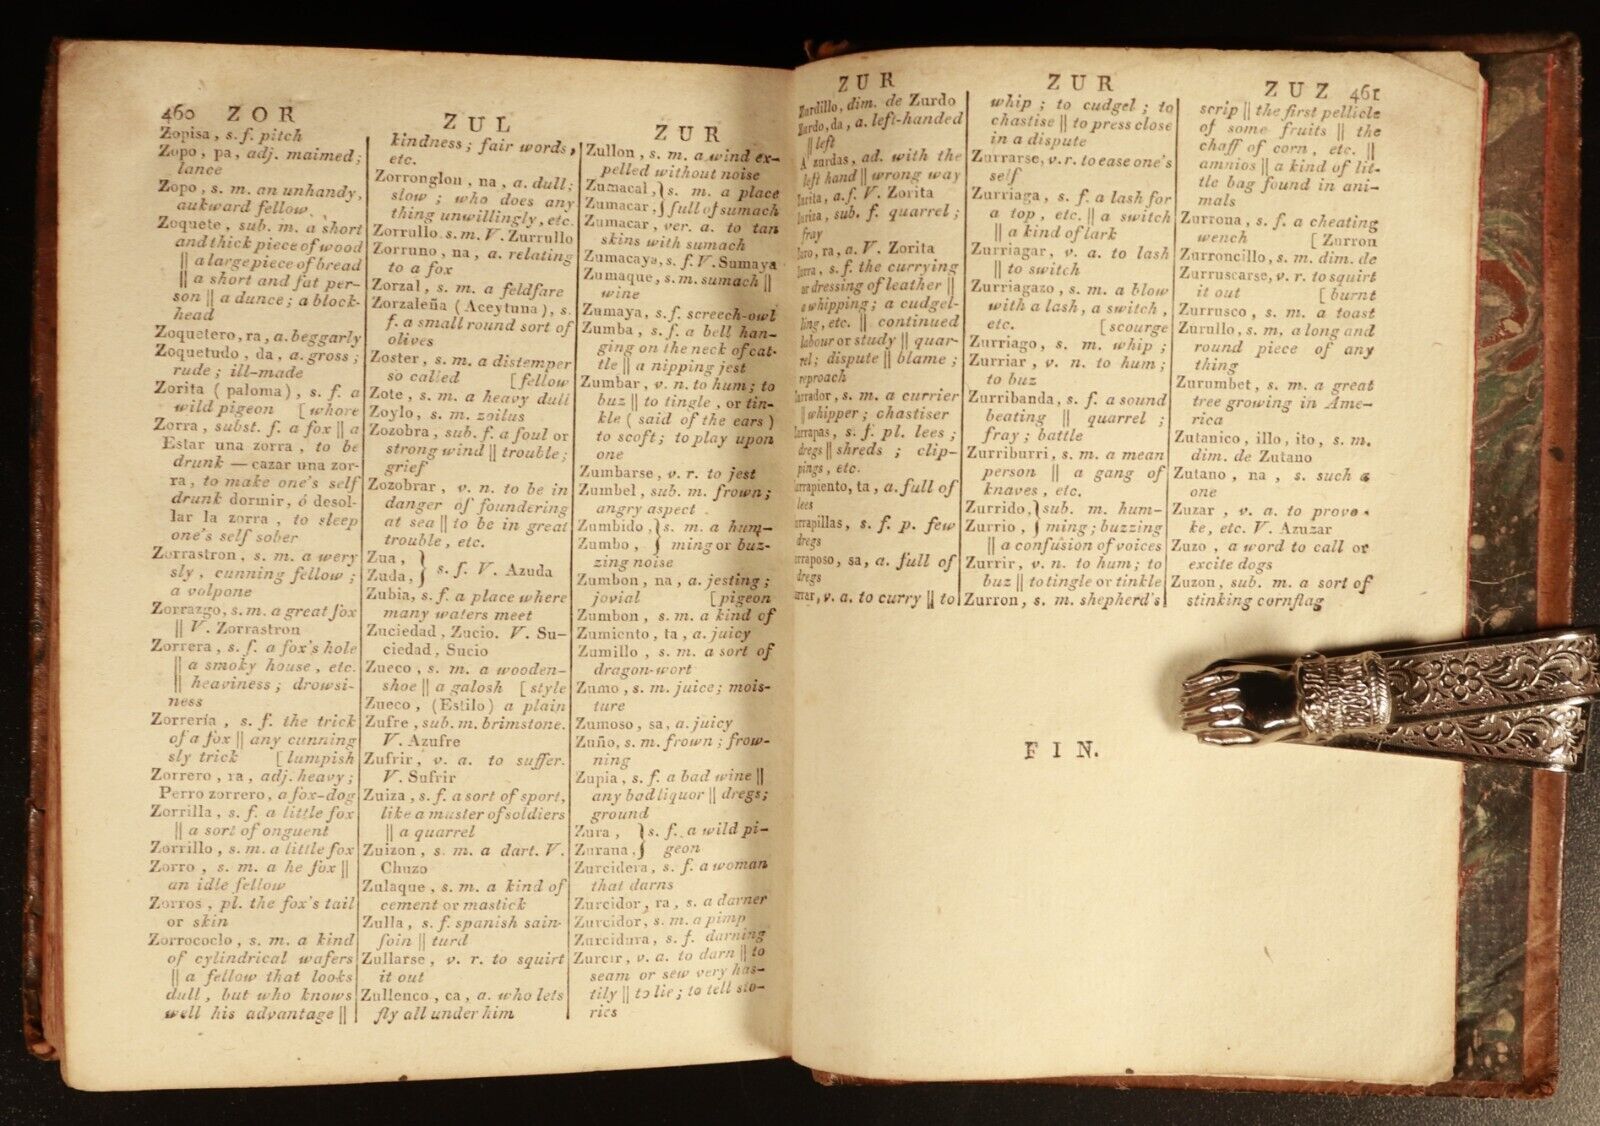 460 ZOR
Zopisa, s. f. pitch
Zopo, pa, adj. maimed;
lance
Zopo, s. m. an unhandy,
aukward fellow
Zoquete, sub. m. a short
and thick piece of wood
|| a large piece of bread
|| a short and fat per-
son || a dunce; a block-
head
Zoquetero, ra, a. beggarly
Zoquetudo, da, a. gross;
rude; ill-made
Zorita (paloma), s. f. a
wild pigeon [whore
Zorra, subst. f. a fox || a
Estar una zorra, to be
drunk — cazar una zor-
ra, to make one's self
drunk dormir, ó desol-
lar la zorra, to sleep
one's self sober
Zorrastron, s. m. a wery
sly, cunning fellow;
a volpone
Zorrazgo, s. m. a great fox
|| V. Zorrastron
Zorrera, s. f. a fox's hole
|| a smoky house, etc.
|| heaviness; drowsi-
ness
Zorrería, s. f. the trick
of a fox || any cunning
sly trick [lumpish
Zorrero, ra, adj. heavy;
Perro zorrero, a fox-dog
Zorrilla, s. f. a little fox
|| a sort of onguent
Zorrillo, s. m. a little fox
Zorro, s. m. a he fox ||
an idle fellow
Zorros, pl. the fox's tail
or skin
Zorrococlo, s. m. a kind
of cylindrical wafers
|| a fellow that looks
dull, but who knows
well his advantage ||
ZUL
kindness; fair words,
etc.
Zorronglon, na, a. dull;
slow; who does any
thing unwillingly, etc.
Zorrullo. s. m. V. Zurrullo
Zorruno, na, a. relating
to a fox
Zorzal, s. m. a feldfare
Zorzaleña (Aceytuna), s.
f. a small round sort of
olives
Zoster, s. m. a distemper
so called [fellow
Zote, s. m. a heavy dull
Zoylo, s. m. zoilus
Zozobra, sub. f. a foul or
strong wind || trouble;
grief
Zozobrar, v. n. to be in
danger of foundering
at sea || to be in great
trouble, etc.
Zua, }
Zuda, } s. f. V. Azuda
Zubia, s. f. a place where
many waters meet
Zuciedad, Zucio. V. Su-
ciedad, Sucio
Zueco, s. m. a wooden-
shoe || a galosh [style
Zueco, (Estilo) a plain
Zufre, sub. m. brimstone.
V. Azufre
Zufrir, v. a. to suffer.
V. Sufrir
Zuiza, s. f. a sort of sport,
like a muster of soldiers
|| a quarrel
Zuizon, s. m. a dart. V.
Chuzo
Zulaque, s. m. a kind of
cement or mastick
Zulla, s. f. spanish sain-
foin || turd
Zullarse, v. r. to squirt
it out
Zullenco, ca, a. who lets
fly all under him
ZUR
Zullon, s. m. a wind ex-
pelled without noise
Zumacal, } s. m. a place
Zumacar, } full of sumach
Zumacar, ver. a. to tan
skins with sumach
Zumacaya, s. f. V. Sumaya
Zumaque, s. m. sumach ||
wine
Zumaya, s. f. screech-owl
Zumba, s. f. a bell han-
ging on the neck of cat-
tle || a nipping jest
Zumbar, v. n. to hum; to
buz || to tingle, or tin-
kle (said of the ears)
to scoft; to play upon
one
Zumbarse, v. r. to jest
Zumbel, sub. m. frown;
angry aspect
Zumbido, } s. m. a hum-
Zumbo, } ming or buz-
zing noise
Zumbon, na, a. jesting;
jovial [pigeon
Zumbon, s. m. a kind of
Zumiento, ta, a. juicy
Zumillo, s. m. a sort of
dragon-wort
Zumo, s. m. juice; mois-
ture
Zumoso, sa, a. juicy
Zuño, s. m. frown; frow-
ning
Zupia, s. f. a bad wine ||
any bad liquor || dregs;
ground
Zura, } s. f. a wild pi-
Zurana, } geon
Zurcidera, s. f. a woman
that darns
Zurcidor, ra, s. a darner
Zurcidor, s. m. a pimp
Zurcidura, s. f. darning
Zurcir, v. a. to darn || to
seam or sew very has-
tily || to lie; to tell sto-
ries
ZUR
Zurdillo, dim. de Zurdo
Zurdo, da, a. left-handed
|| left
A' zurdas, ad. with the
left hand || wrong way
Zurita, a. f. V. Zorita
Zuriza, sub. f. quarrel;
fray
Zuro, ra, a. V. Zorita
Zurra, s. f. the currying
or dressing of leather ||
a whipping; a cudgel-
ling, etc. || continued
labour or study || quar-
rel; dispute || blame;
reproach
Zurrador, s. m. a currier
|| whipper; chastiser
Zurrapas, s. f. pl. lees;
dregs || shreds; clip-
pings, etc.
Zurrapiento, ta, a. full of
lees
Zurrapillas, s. f. p. few
dregs
Zurraposo, sa, a. full of
dregs
Zurrar, v. a. to curry || to
ZUR
whip; to cudgel; to
chastise || to press close
in a dispute
Zurrarse, v. r. to ease one's
self
Zurriaga, s. f. a lash for
a top, etc. || a switch
|| a kind of lark
Zurriagar, v. a. to lash
|| to switch
Zurriagazo, s. m. a blow
with a lash, a switch,
etc. [scourge
Zurriago, s. m. whip;
Zurriar, v. n. to hum;
to buz
Zurribanda, s. f. a sound
beating || quarrel;
fray; battle
Zurriburri, s. m. a mean
person || a gang of
knaves, etc.
Zurrido, } sub. m. hum-
Zurrio, } ming; buzzing
|| a confusion of voices
Zurrir, v. n. to hum; to
buz || to tingle or tinkle
Zurron, s. m. shepherd's
ZUZ 461
scrip || the first pellicle
of some fruits || the
chaff of corn, etc. ||
amnios || a kind of lit-
tle bag found in ani-
mals
Zurrona, s. f. a cheating
wench [Zurron
Zurroncillo, s. m. dim. de
Zurruscarse, v. r. to squirt
it out [burnt
Zurrusco, s. m. a toast
Zurullo, s. m. a long and
round piece of any
thing
Zurumbet, s. m. a great
tree growing in Ame-
rica
Zutanico, illo, ito, s. m.
dim. de Zutano
Zutano, na, s. such a
one
Zuzar, v. a. to provo-
ke, etc. V. Azuzar
Zuzo, a word to call or
excite dogs
Zuzon, sub. m. a sort of
stinking cornflag
FIN.